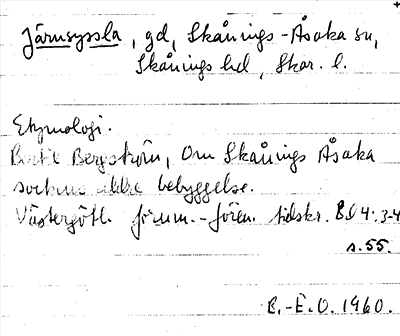 Järnsyssla, gd, Skånings-Åsaka sn,
Skånings hd, Skar. l.
Etymologi.
Bertil Bergström, Om Skånings Åsaka
sockens äldre bebyggelse.
Västergötl. fornm.-fören. tidskr. Bd 4: 3-4
s. 55.
B.-E.O. 1960.